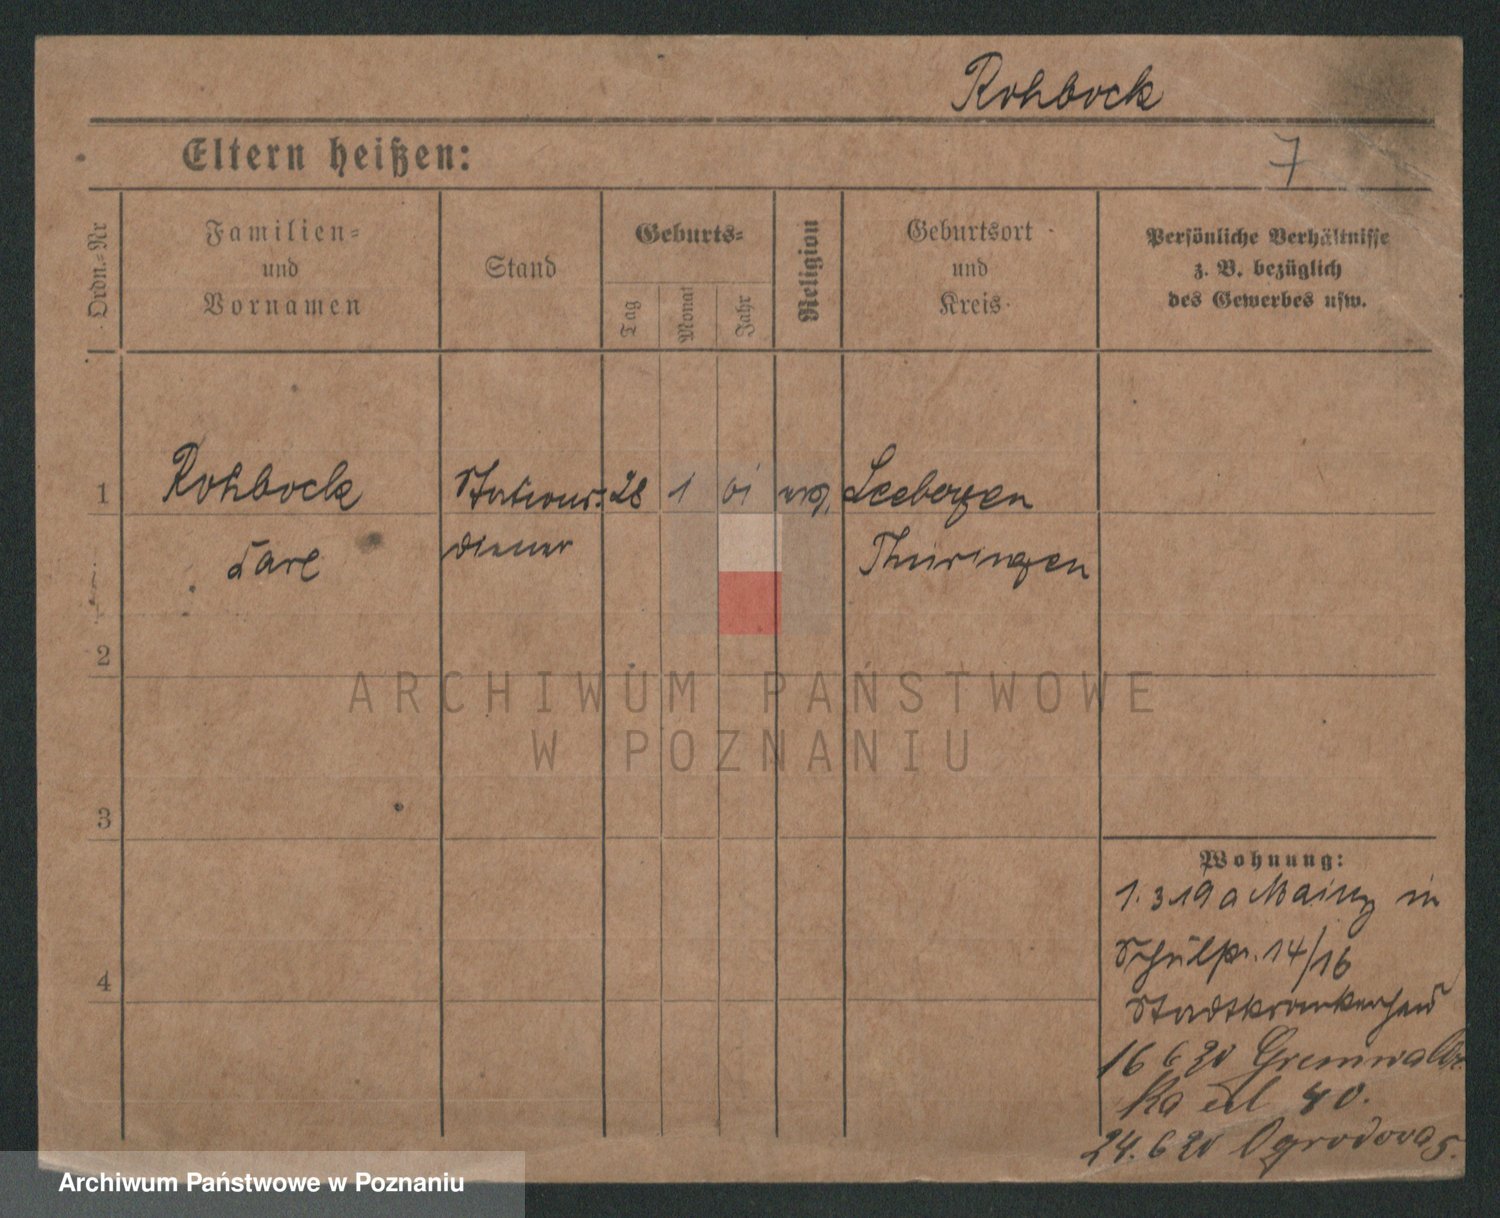 Rohbock
Eltern heißen:
7
Ordn.-Nr
Familien-
und
Vornamen
Stand
Geburts-
Tag
Monat
Jahr
Religion
Geburtsort
und
Kreis
Persönliche Verhältnisse
z. B. bezüglich
des Gewerbes usw.
1 Rohbock Stations- 28 1 01 evg. Seebergen
Carl diener Thüringen
2
ARCHIWUM PAŃSTWOWE
W POZNANIU
3
Wohnung:
1. 3 19 a Mainz in
Schulstr. 14/16
4
Stadtkrankenhaus
16 6 20
40.
24. 6 20 Ogrodowa 5.
Archiwum Państwowe w Poznaniu